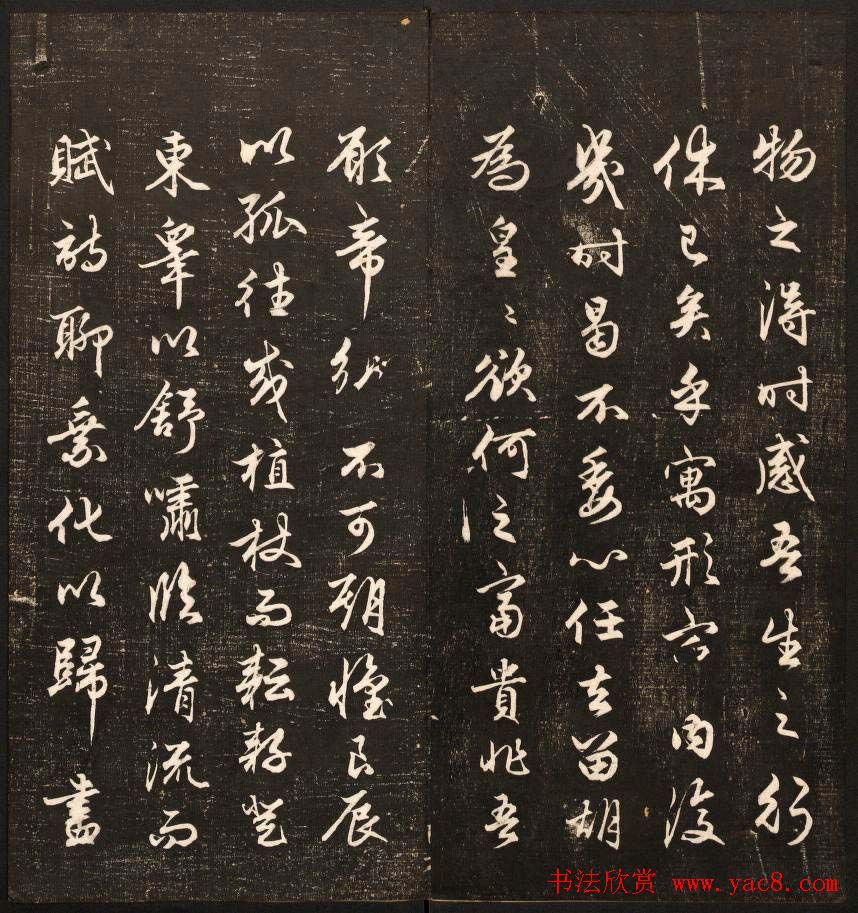 物之得时感吾生之行
休已矣乎寓形宇内復
幾时曷不委心任去留胡
為皇〻欲何之富貴非吾
願帝鄉不可期懷良辰
以孤往或植杖而耘耔登
東皋以舒嘯臨清流而
賦詩聊乘化以歸盡
书法欣赏 www.yac8.com